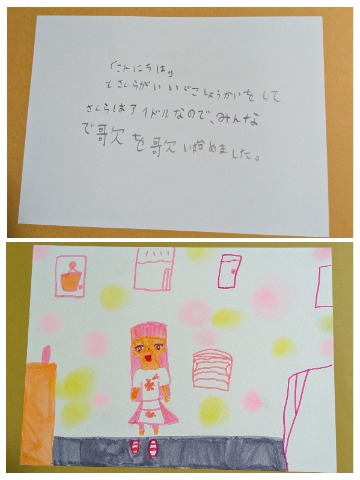 「こんにちは。」
とさくらがいいじこしょうかいをして
さくらはアイドルなので、みんな
で歌を歌い始めました。